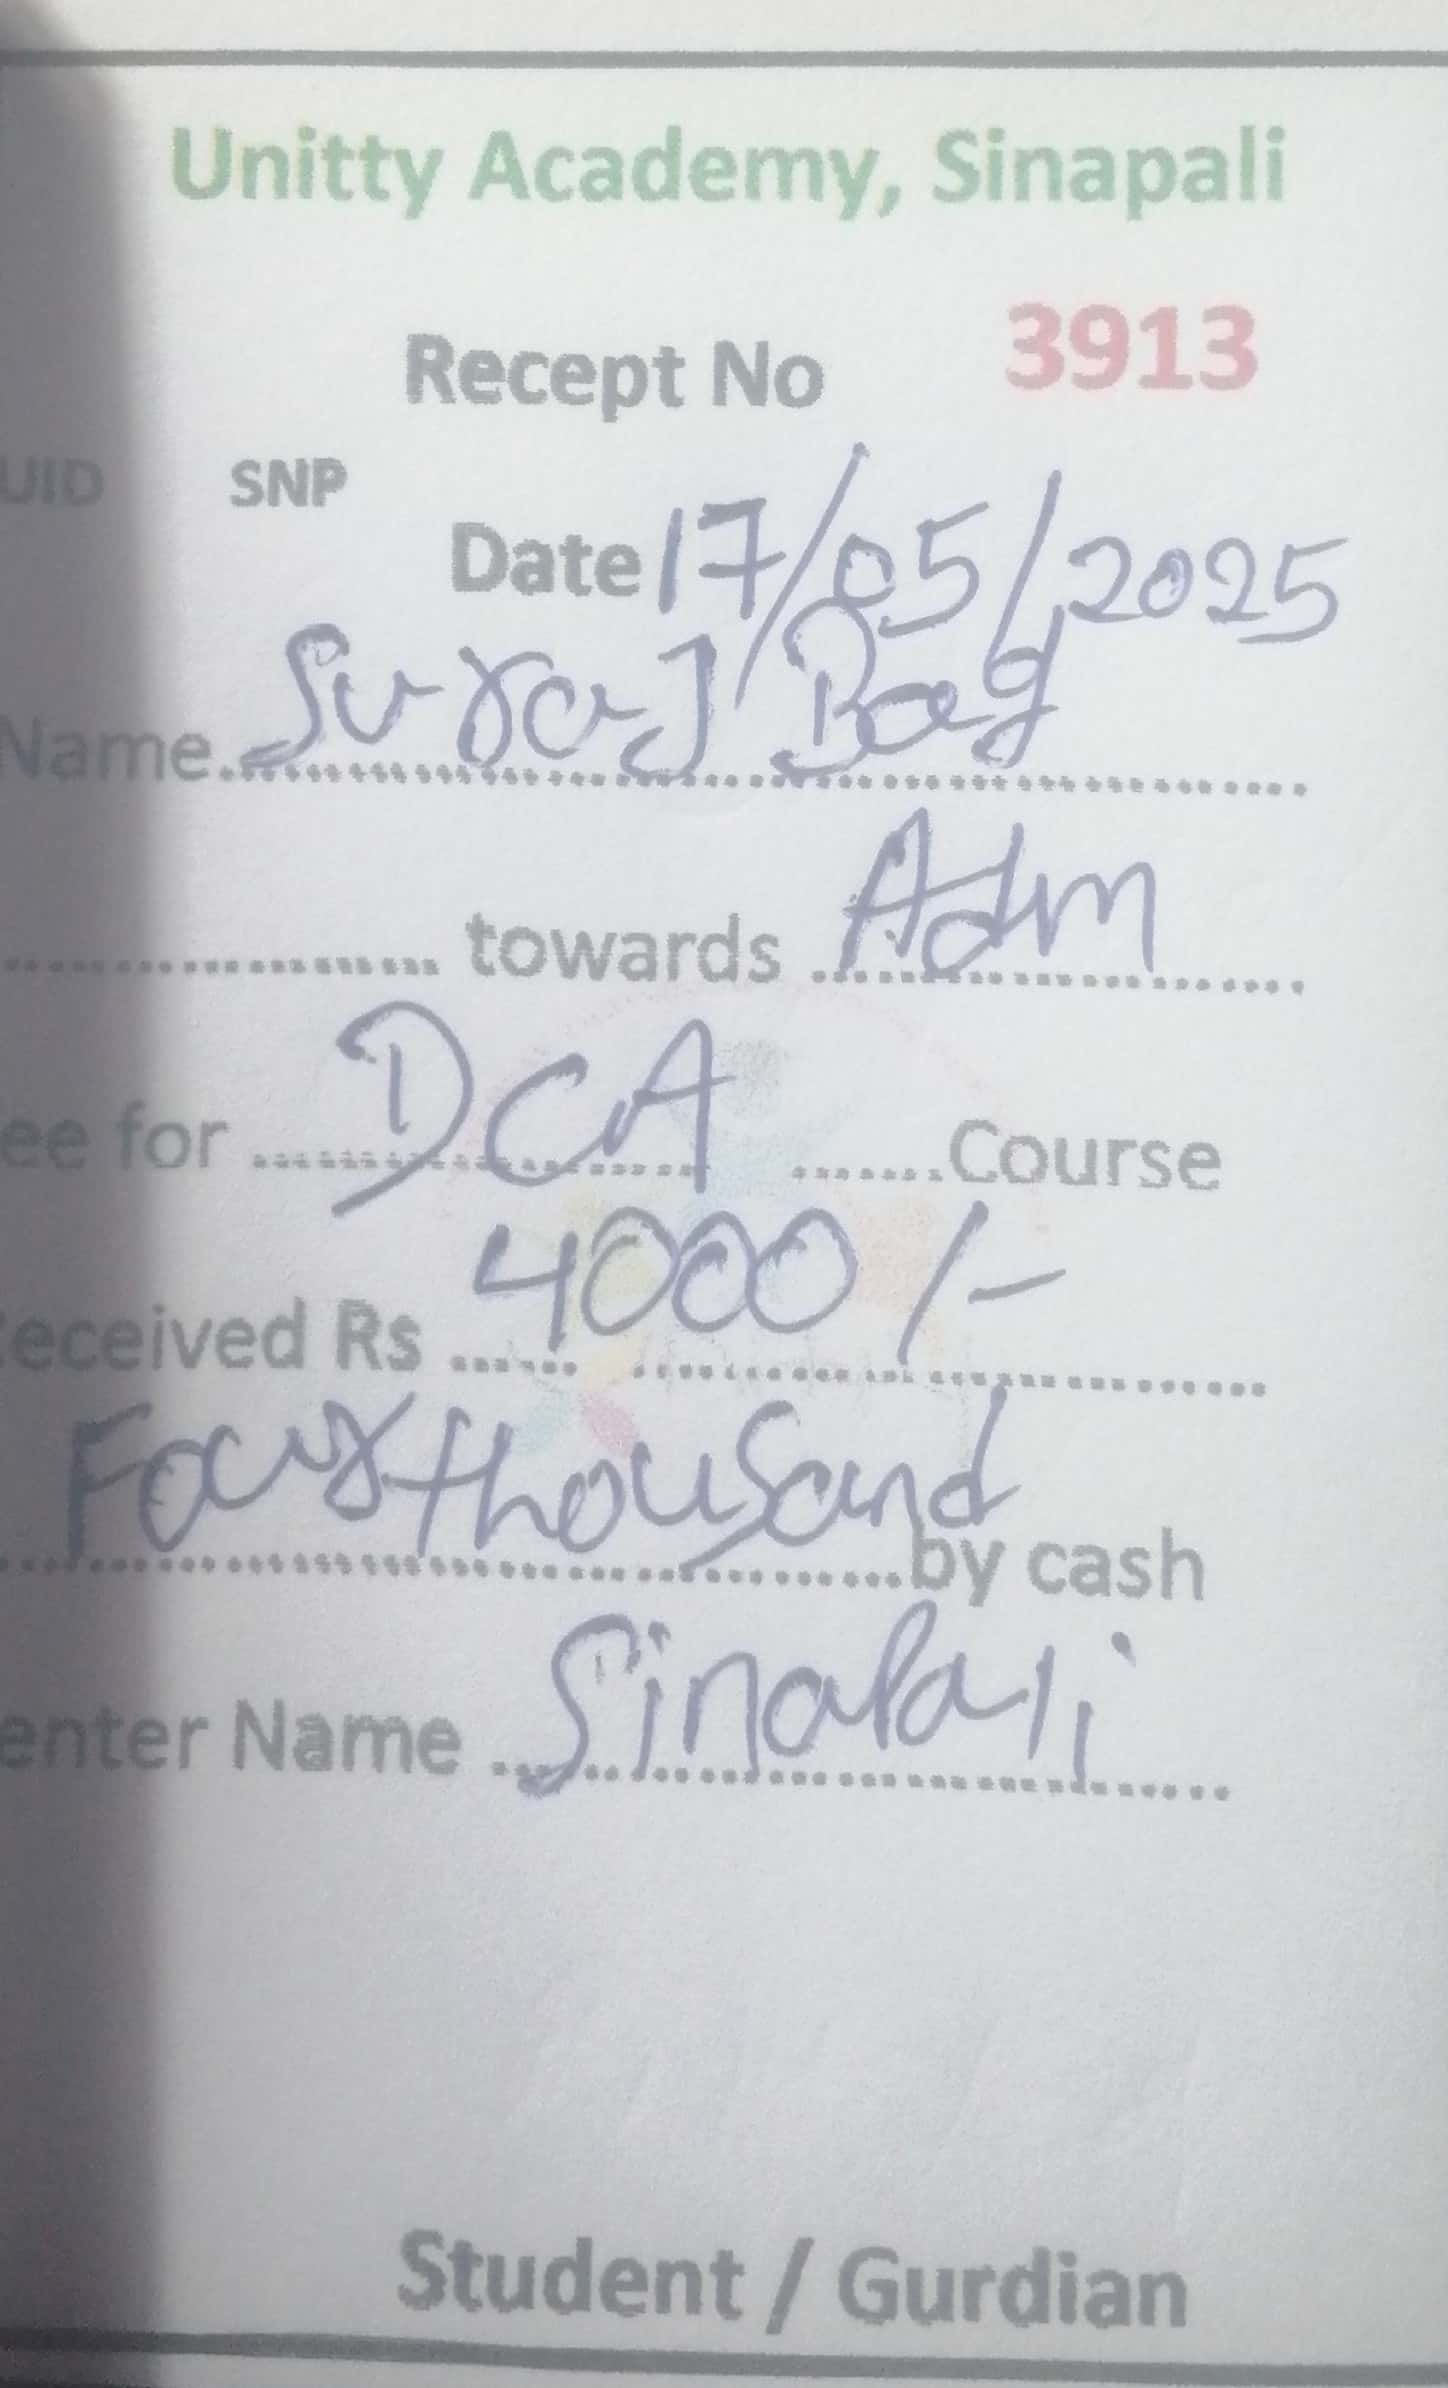 Unitty Academy, Sinapali
Recept No 3913
UID SNP
Date 17/05/2025
Name Suraj Bag
towards Adm
ee for DCA Course
eceived Rs 4000/-
Four thousand by cash
enter Name Sinapali
Student / Gurdian